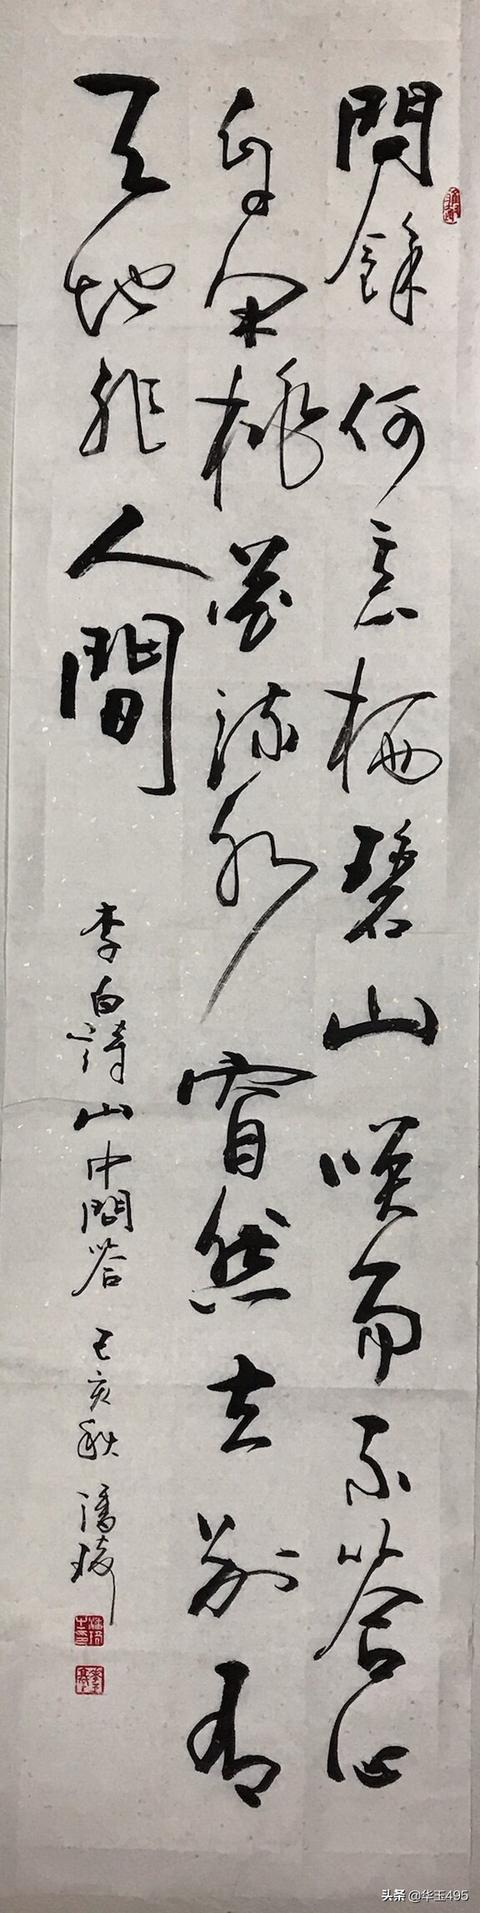 問餘何意栖碧山咲而不答心
自閑桃花流水窅然去別有
天地非人間
李白詩山中問答 己亥秋 潘琦
头条 @华玉495